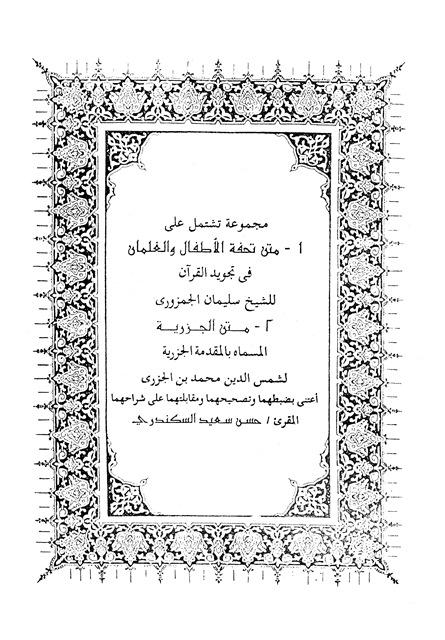 مجموعة تشتمل على
١ - متن تحفة الأطفال والغلمان
فى تجويد القرآن
للشيخ سليمان الجمزورى
٢ - متن الجزرية
المسماه بالمقدمة الجزرية
لشمس الدين محمد بن الجزرى
أعتنى بضبطهما وتصحيحهما ومقابلتهما على شراحهما
المقرئ / حسن سعيد السكندري